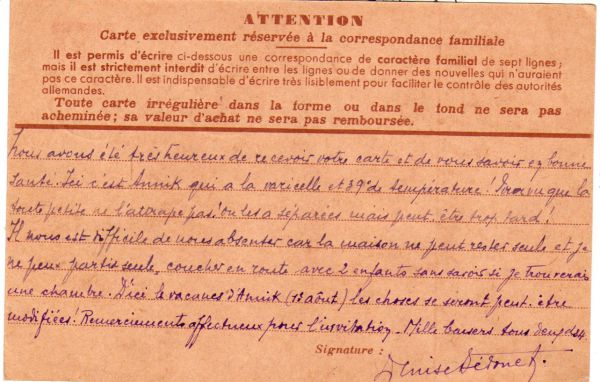 ATTENTION
Carte exclusivement réservée à la correspondance familiale
Il est permis d'écrire ci-dessous une correspondance de caractère familial de sept lignes ;
mais il est strictement interdit d'écrire entre les lignes ou de donner des nouvelles qui n'auraient
pas ce caractère. Il est indispensable d'écrire très lisiblement pour faciliter le contrôle des autorités
allemandes.
Toute carte irrégulière dans la forme ou dans le fond ne sera pas
acheminée ; sa valeur d'achat ne sera pas remboursée.
Nous avons été très heureux de recevoir votre carte et de vous savoir en bonne
santé. Ici c'est Annik qui a la varicelle et 39° de température ! Pourvu que la
toute petite ne l'attrape pas ! on les a séparées mais peut être trop tard !
Il nous est difficile de nous absenter car la maison ne peut rester seule et je
ne peux partir seule, coucher en route avec 2 enfants sans savoir si je trouverais
une chambre. D'ici le vacances d'Annik (1er août) les choses se seront peut. être
modifiées ! Remerciements affectueux pour l'invitation. Mille baisers tous deux
Signature :
Denise